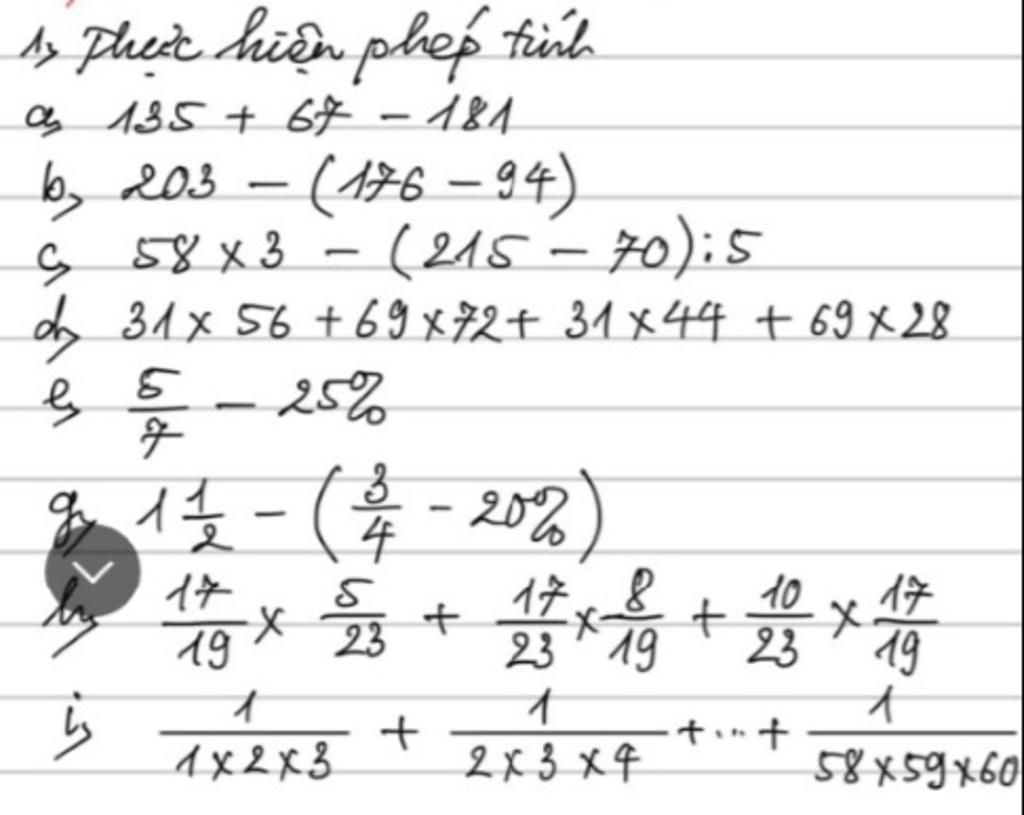 1, Thực hiện phép tính
a, 135 + 67 - 181
b, 203 - (176 - 94)
c, 58 x 3 - (215 - 70) : 5
d, 31 x 56 + 69 x 72 + 31 x 44 + 69 x 28
e, 5/7 - 25%
g, 1 1/2 - (3/4 - 20%)
h, 17/19 x 5/23 + 17/23 x 8/19 + 10/23 x 17/19
i, 1/(1x2x3) + 1/(2x3x4) + ... + 1/(58x59x60)